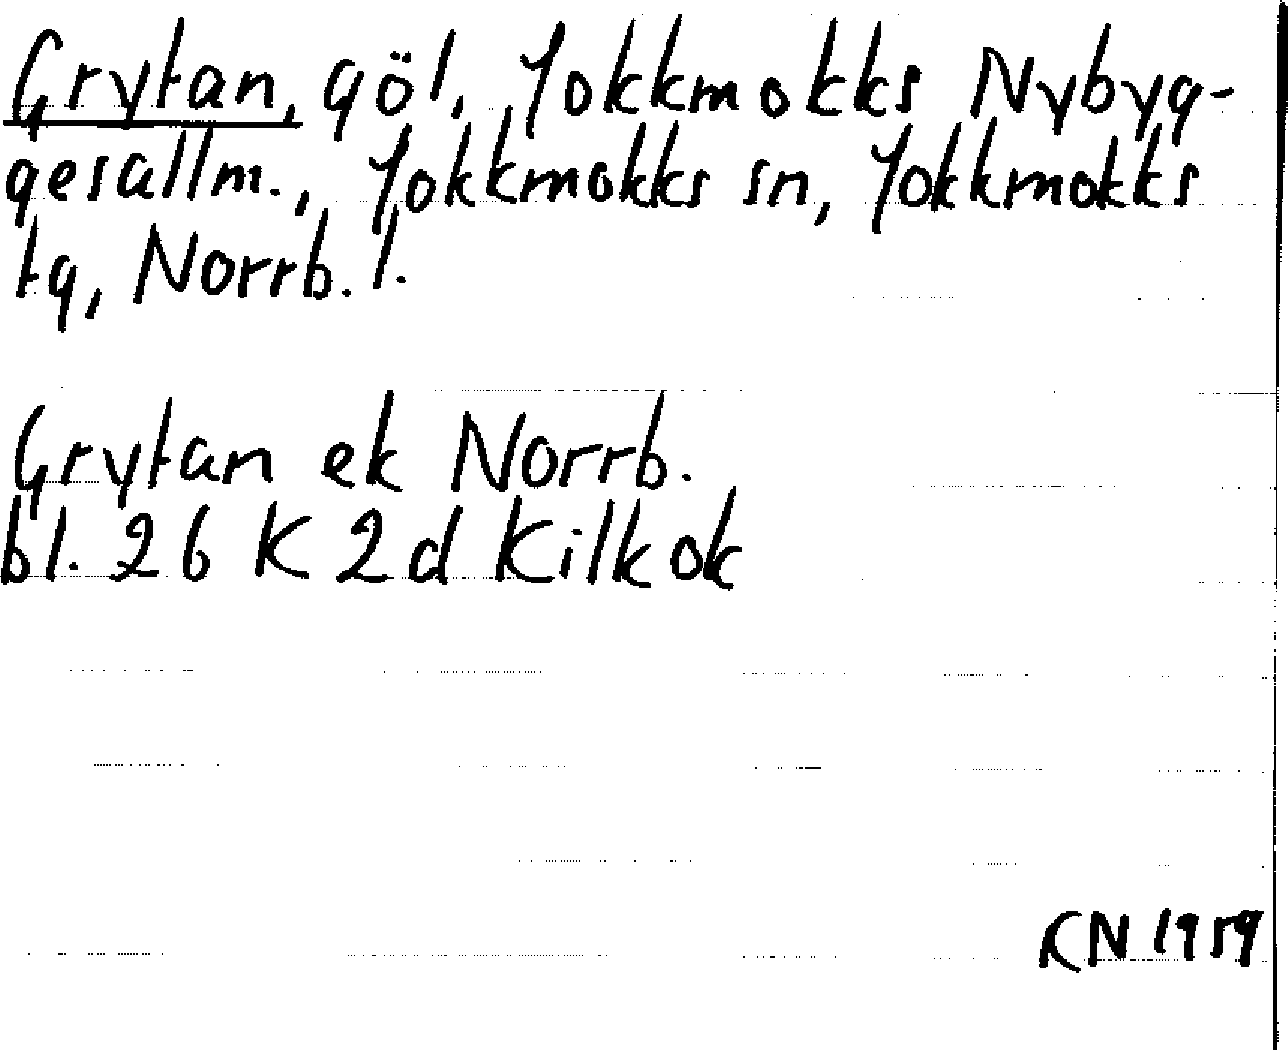 Grytan, göl, Jokkmokks Nybyg-
gesallm., Jokkmokks sn, Jokkmokks
tg, Norrb. l.
Grytan ek Norrb.
bl. 26 K 2d Kilkok
KN 1959